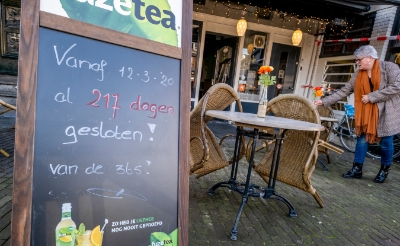 fuzetea.
Vanaf 12-3-'20
al 217 dagen
gesloten!
van de 365!
ZO HEB JE LEKKER
NOG NOOIT GEPROEFD
fuzetea